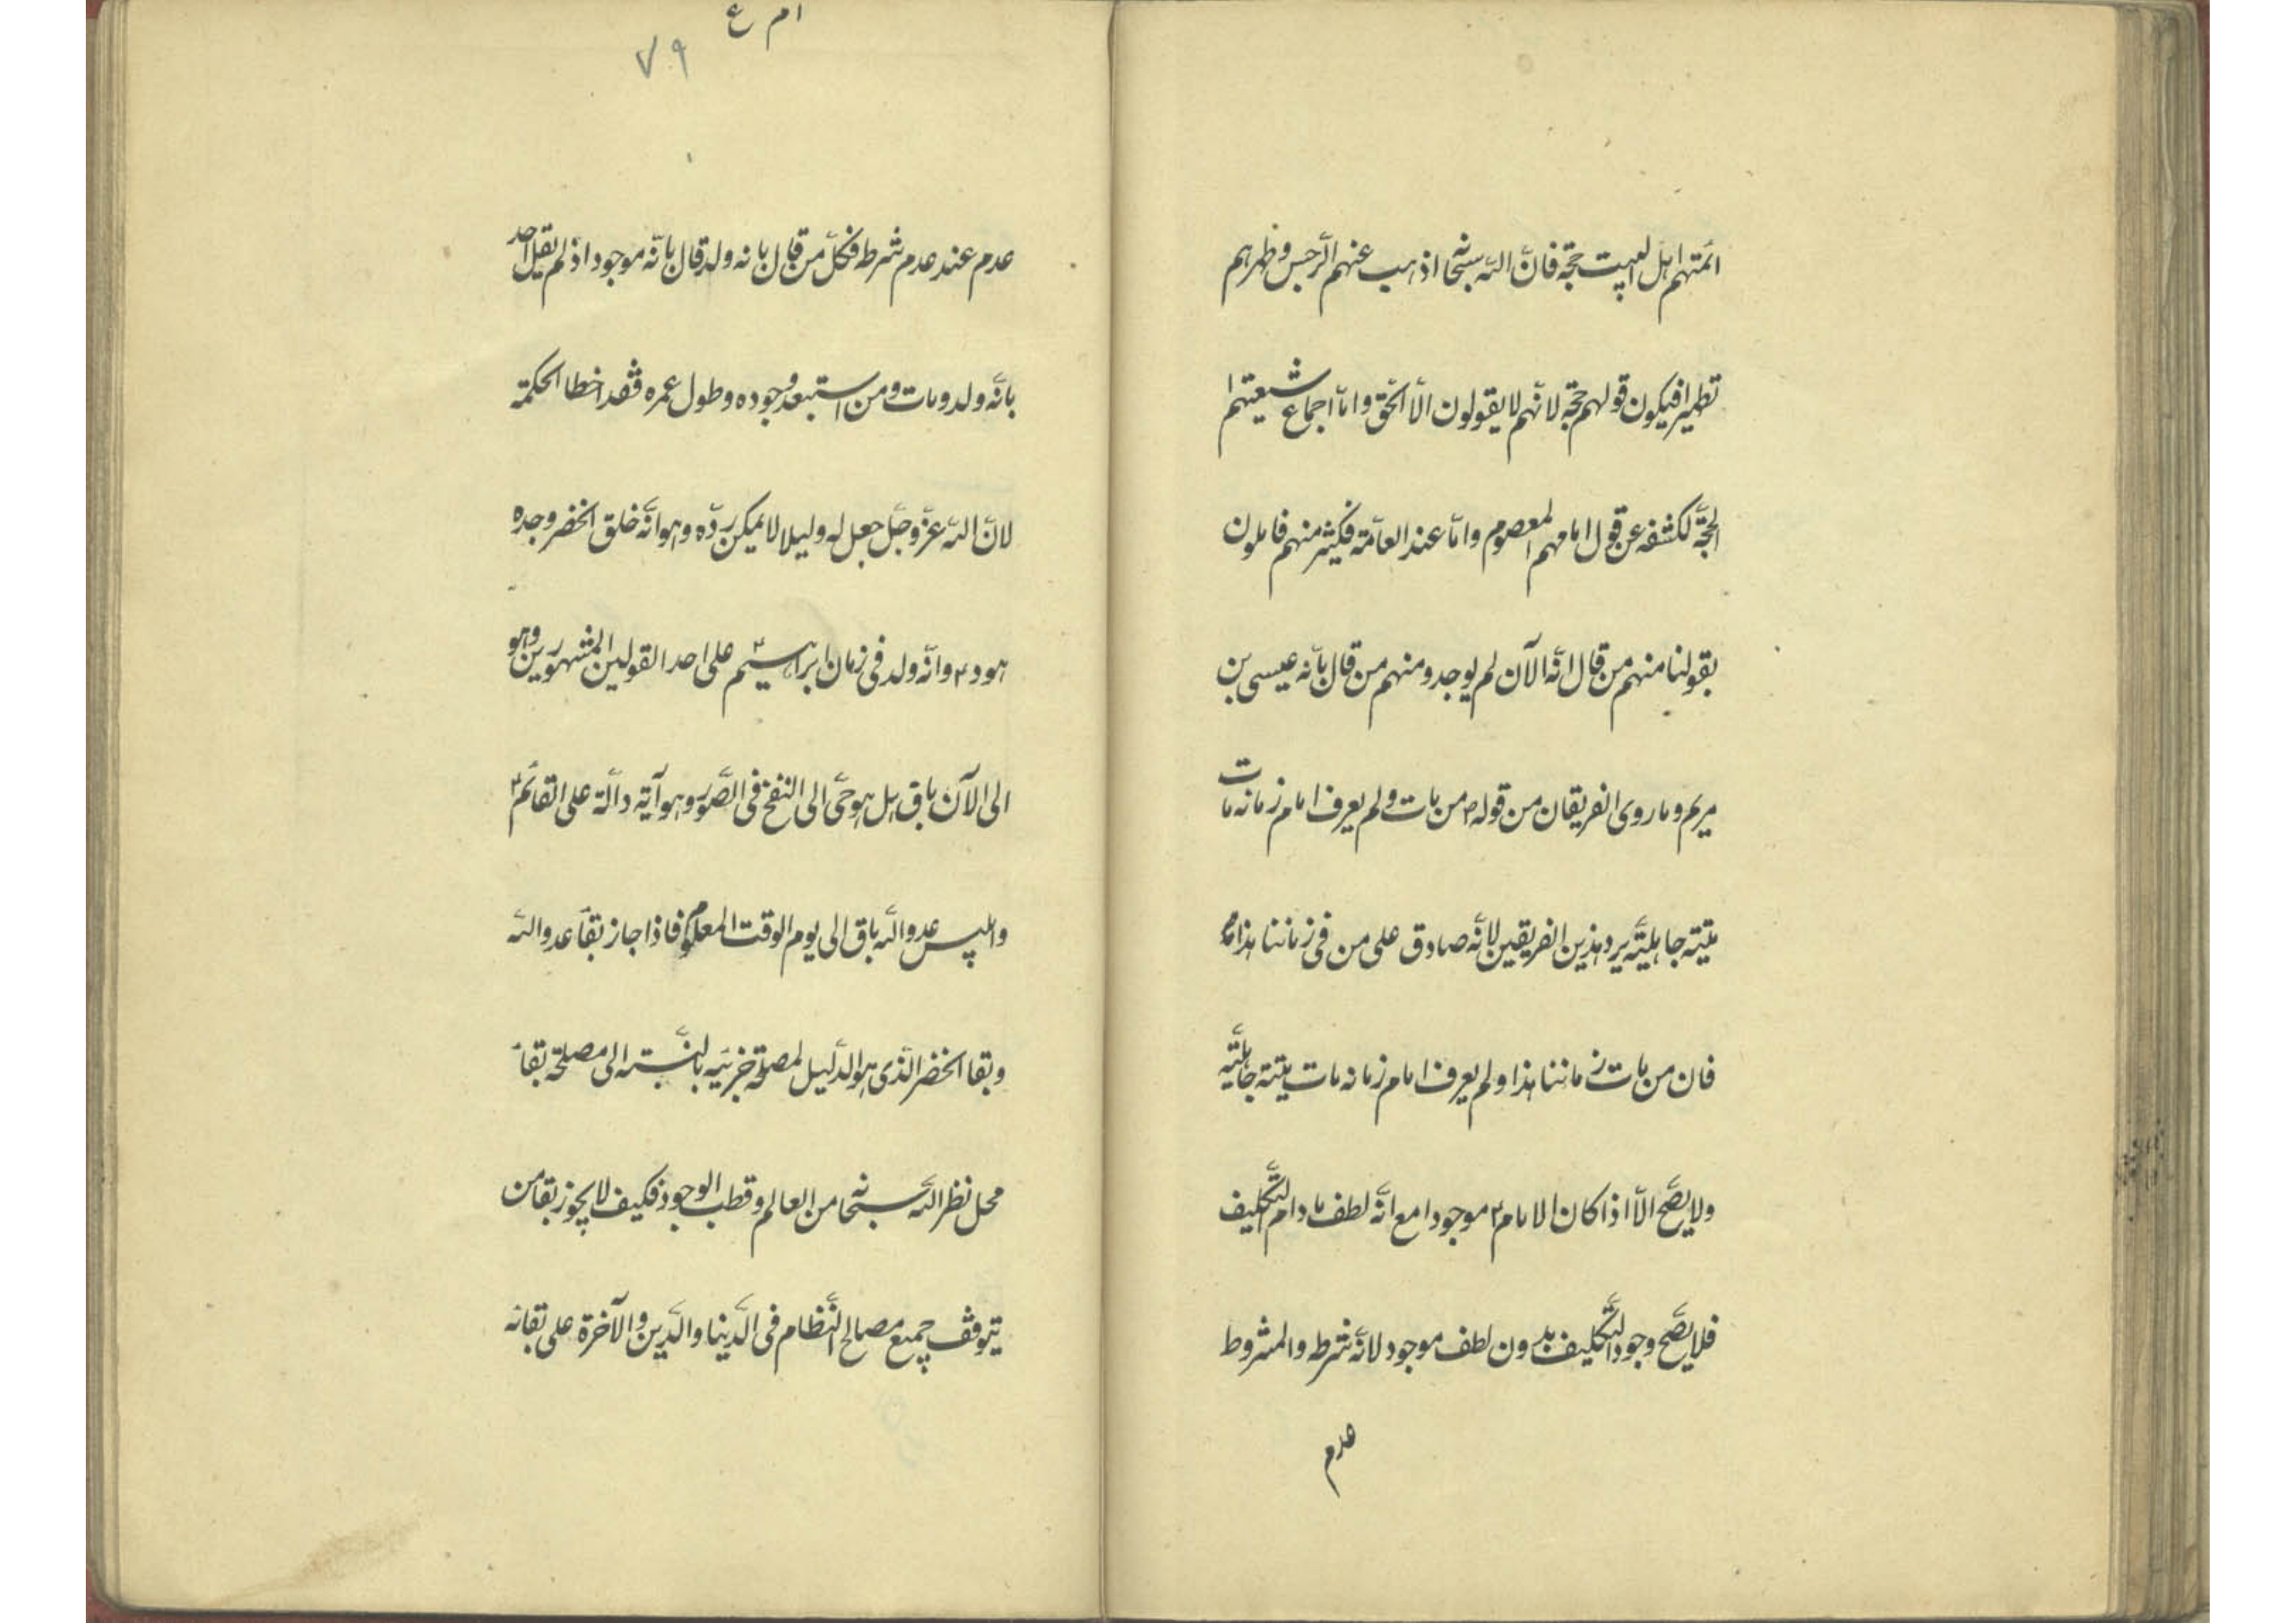 ائمتهم اهل البيت حجة فانّ اللّه سبحانه اذهب عنهم الرّجس وطهرهم
تطهيرا فيكون قولهم حجة لانّهم لا يقولون الّا الحقّ وامّا اجماع شيعتهم
الحجّة لكشفه عن قول امامهم المعصوم وامّا عند العامّة فكثير منهم قايلون
بقولنا منهم من قال انّه الآن لم يوجد ومنهم من قال بانّه عيسى بن
مريم وما روى الفريقان من قوله ص من مات ولم يعرف امام زمانه مات
ميتة جاهليّة يرد هذين الفريقين لانّه صادق على من فى زماننا هذا
فان من مات زماننا هذا ولم يعرف امام زمانه مات ميتة جاهليّة
ولا يصّح الّا اذا كان الامام ع موجودا مع انّه لطف مادام التّكليف
فلا يصّح وجود التّكليف بدون لطف موجود لانّه شرط والمشروط
عدم
ام ع
٧٩
عدم عند عدم شرط فكلّ من قال بانه ولد قال بانّه موجود اذ لم يقل احد
بانّه ولد ومات ومن استبعد وجوده وطول عمره فقد اخطا الحكمة
لانّ اللّه عزّ وجلّ جعل له دليلا لا يمكن ردّه وهو انّه خلق الخضر وجده
هود ع وانّه ولد فى زمان ابراهيم ع على احد القولين المشهورين وهو
الى الآن باق بل هو حىّ الى النفخ فى الصّور وهو آية دالّة على القائم ع
وابليس عدو اللّه باق الى يوم الوقت المعلوم فاذا جاز بقآ عدو اللّه
وبقا الخضر الّذى هو الدّليل لمصلحة جزئيه بالنّسبة الى مصلحة بقآ
محل نظر اللّه سبحانه من العالم وقطب الوجود فكيف لا يجوز بقا من
يتوقف جميع مصالح النّظام فى الدّنيا والدّين والآخرة على بقائه